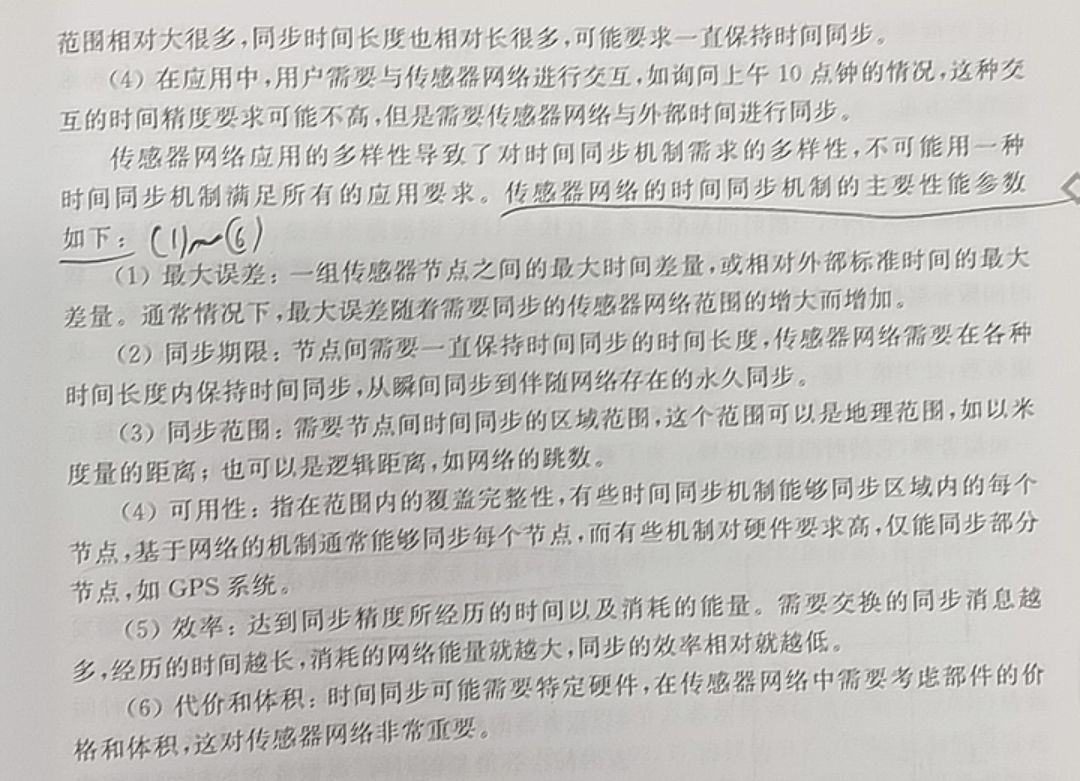 范围相对大很多,同步时间长度也相对长很多,可能要求一直保持时间同步。
(4) 在应用中,用户需要与传感器网络进行交互,如询问上午 10 点钟的情况,这种交
互的时间精度要求可能不高,但是需要传感器网络与外部时间进行同步。
传感器网络应用的多样性导致了对时间同步机制需求的多样性,不可能用一种
时间同步机制满足所有的应用要求。传感器网络的时间同步机制的主要性能参数
如下: (1)~(6)
(1) 最大误差: 一组传感器节点之间的最大时间差量,或相对外部标准时间的最大
差量。通常情况下,最大误差随着需要同步的传感器网络范围的增大而增加。
(2) 同步期限: 节点间需要一直保持时间同步的时间长度,传感器网络需要在各种
时间长度内保持时间同步,从瞬间同步到伴随网络存在的永久同步。
(3) 同步范围: 需要节点间时间同步的区域范围,这个范围可以是地理范围,如以米
度量的距离; 也可以是逻辑距离,如网络的跳数。
(4) 可用性: 指在范围内的覆盖完整性,有些时间同步机制能够同步区域内的每个
节点,基于网络的机制通常能够同步每个节点,而有些机制对硬件要求高,仅能同步部分
节点,如 GPS 系统。
(5) 效率: 达到同步精度所经历的时间以及消耗的能量。需要交换的同步消息越
多,经历的时间越长,消耗的网络能量就越大,同步的效率相对就越低。
(6) 代价和体积: 时间同步可能需要特定硬件,在传感器网络中需要考虑部件的价
格和体积,这对传感器网络非常重要。